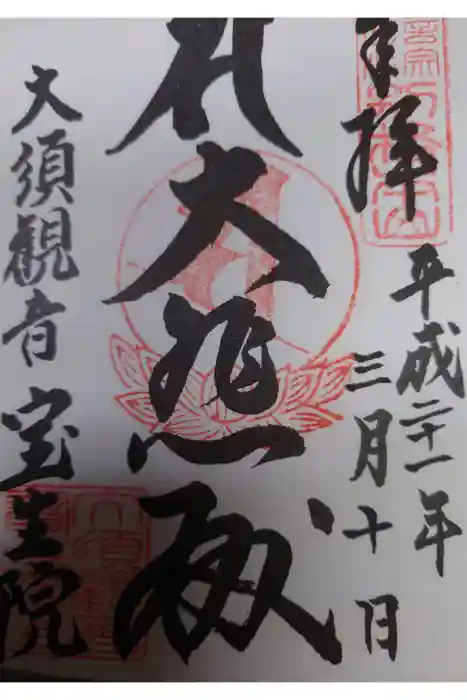 奉拝
平成二十一年
三月十日
大悲殿
大須観音 宝生院